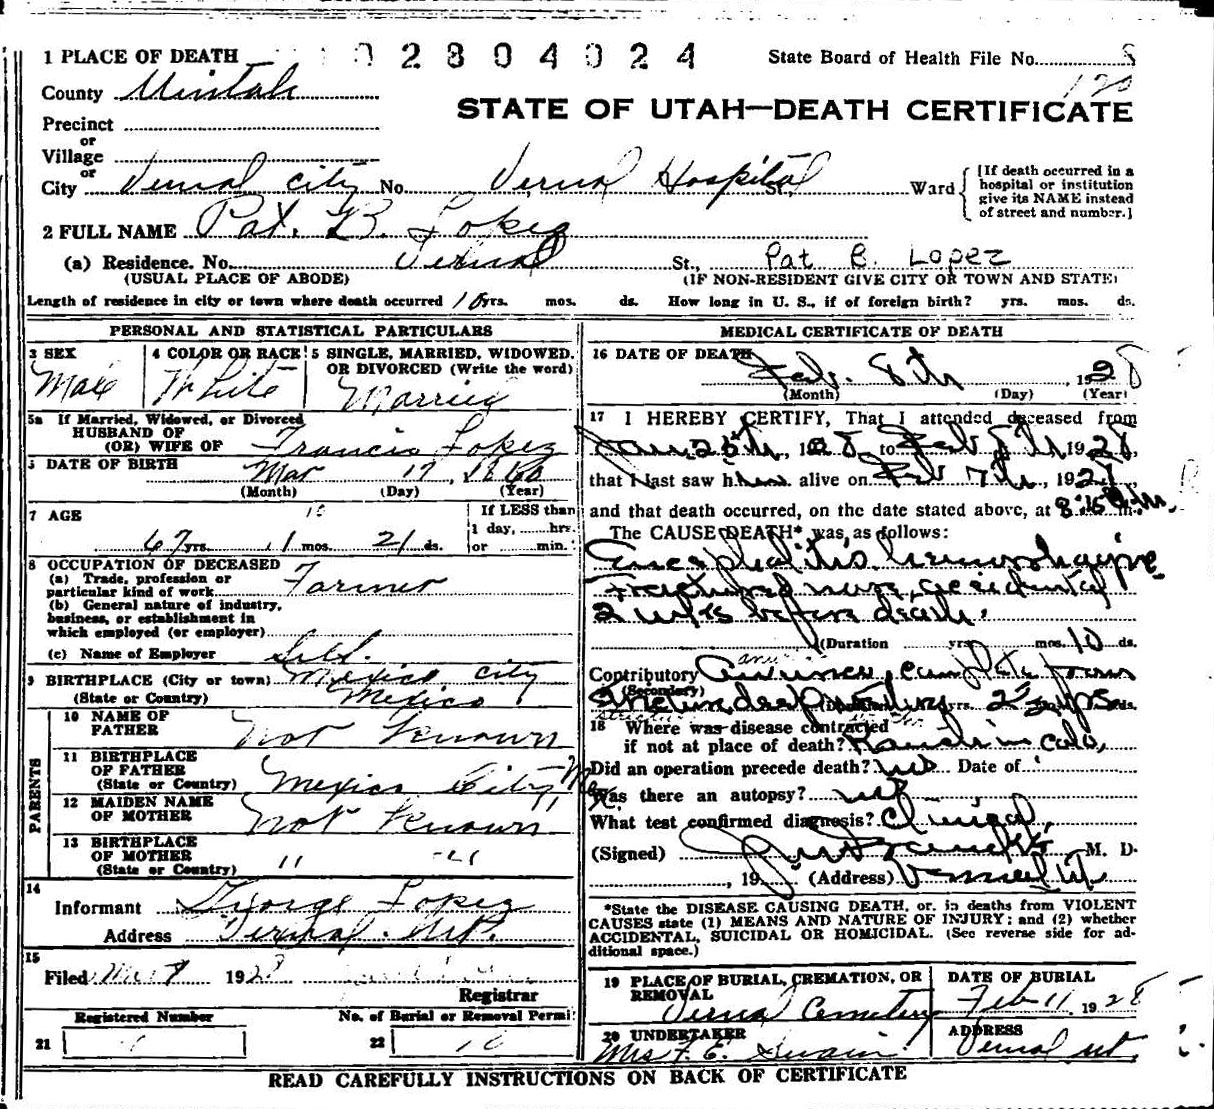 1 PLACE OF DEATH 02804024 State Board of Health File No. 8
County Uintah 120
STATE OF UTAH—DEATH CERTIFICATE
Precinct
or
Village
or
City Vernal City No. Vernal Hospital St. Ward
[If death occurred in a
hospital or institution
give its NAME instead
of street and number.]
2 FULL NAME Pat. B. Lopez
(a) Residence. No. Vernal St., Pat B. Lopez
(USUAL PLACE OF ABODE) (IF NON-RESIDENT GIVE CITY OR TOWN AND STATE)
Length of residence in city or town where death occurred 10 yrs. mos. ds. How long in U. S., if of foreign birth? yrs. mos. ds.
PERSONAL AND STATISTICAL PARTICULARS
3 SEX 4 COLOR OR RACE 5 SINGLE, MARRIED, WIDOWED,
OR DIVORCED (Write the word)
Male White Married
5a If Married, Widowed, or Divorced
HUSBAND OF
(OR) WIFE OF Francis Lopez
DATE OF BIRTH Mar 17, 1860
(Month) (Day) (Year)
7 AGE If LESS than
1 day, hrs.
67 yrs. mos. 21 ds. or min.
8 OCCUPATION OF DECEASED
(a) Trade, profession or
particular kind of work Farmer
(b) General nature of industry,
business, or establishment in
which employed (or employer)
(c) Name of Employer Self.
9 BIRTHPLACE (City or town) Mexico City
(State or Country) Mexico
PARENTS
10 NAME OF
FATHER Not Known
11 BIRTHPLACE
OF FATHER
(State or Country) Mexico City, Mex
12 MAIDEN NAME
OF MOTHER Not Known
13 BIRTHPLACE
OF MOTHER
(State or Country) " "
14
Informant George Lopez
Address Vernal. Ut.
15
Filed 1928
Registrar
Registered Number No. of Burial or Removal Permit
21 22 10
MEDICAL CERTIFICATE OF DEATH
16 DATE OF DEATH
Feb. 8th, 1928
(Month) (Day) (Year)
17 I HEREBY CERTIFY, That I attended deceased from
Jan. 25th, 1928 to Feb 8th 1928,
that I last saw him alive on Feb 7th, 1928
and that death occurred, on the date stated above, at 8:15 m.
The CAUSE DEATH* was, as follows:
Encephalitis hemorrhagipe
Fractured nose, accidental
2 wks before death.
(Duration yrs. mos. 10 ds.
Contributory complete from
(Secondary)
(Duration yrs.
18 Where was disease contracted
if not at place of death? Ranch in Colo.
Did an operation precede death? no Date of
Was there an autopsy? no
What test confirmed diagnosis? Clinical,
(Signed) M. D.
, 19 (Address) Vernal Ut
*State the DISEASE CAUSING DEATH, or, in deaths from VIOLENT
CAUSES state (1) MEANS AND NATURE OF INJURY; and (2) whether
ACCIDENTAL, SUICIDAL OR HOMICIDAL. (See reverse side for ad-
ditional space.)
19 PLACE OF BURIAL, CREMATION, OR
REMOVAL
Vernal Cemetery
DATE OF BURIAL
Feb 11 1928
20 UNDERTAKER
Mrs F. E. Swain
ADDRESS
Vernal Ut.
READ CAREFULLY INSTRUCTIONS ON BACK OF CERTIFICATE